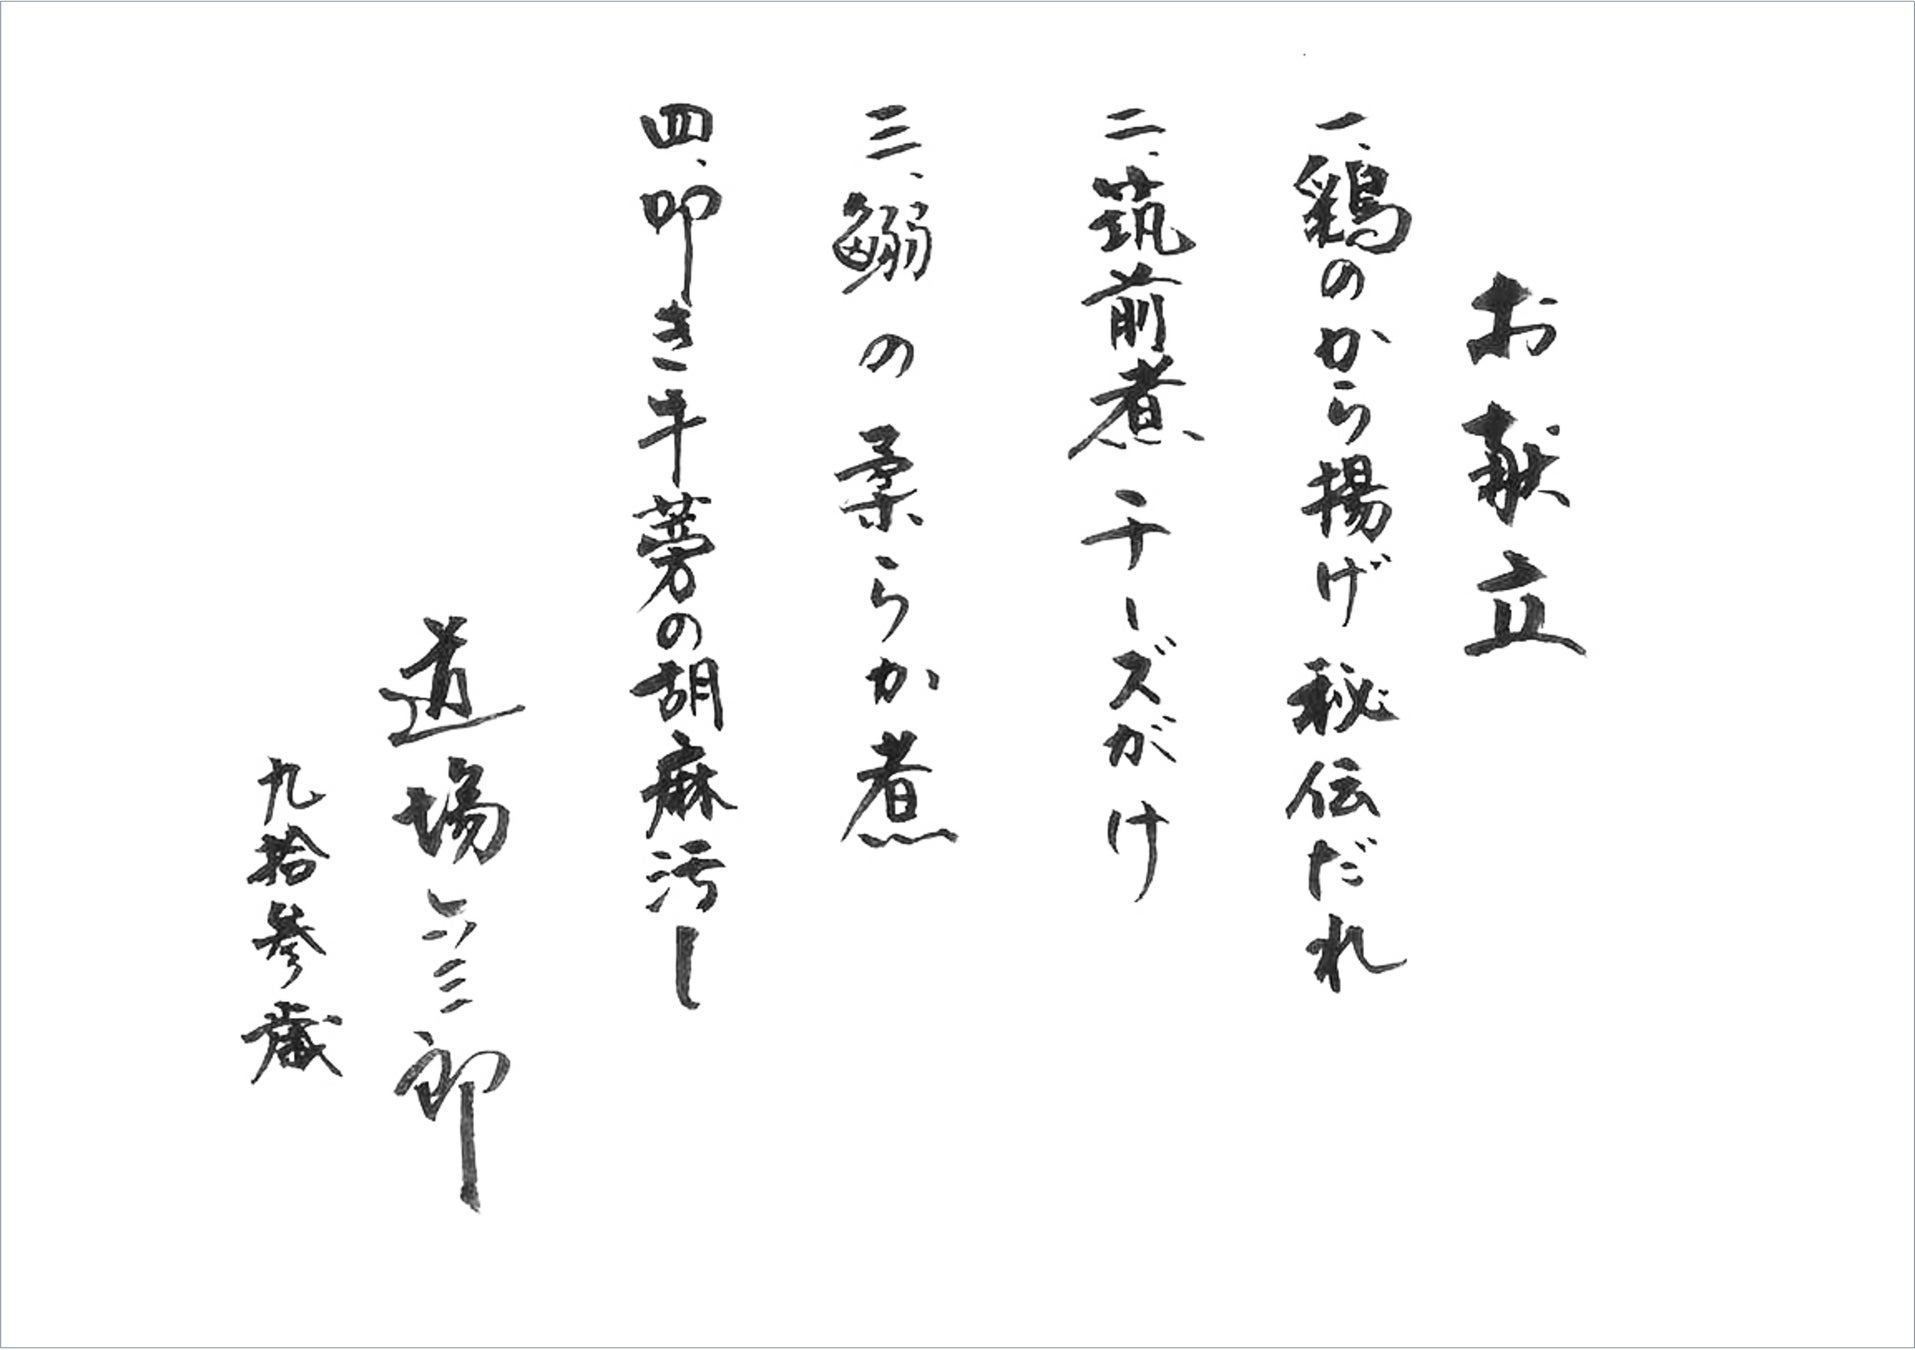 お献立
一、鶏のから揚げ 秘伝だれ
二、筑前煮 チーズがけ
三、鰯の柔らか煮
四、叩き牛蒡の胡麻汚し
道場六三郎
九拾参歳